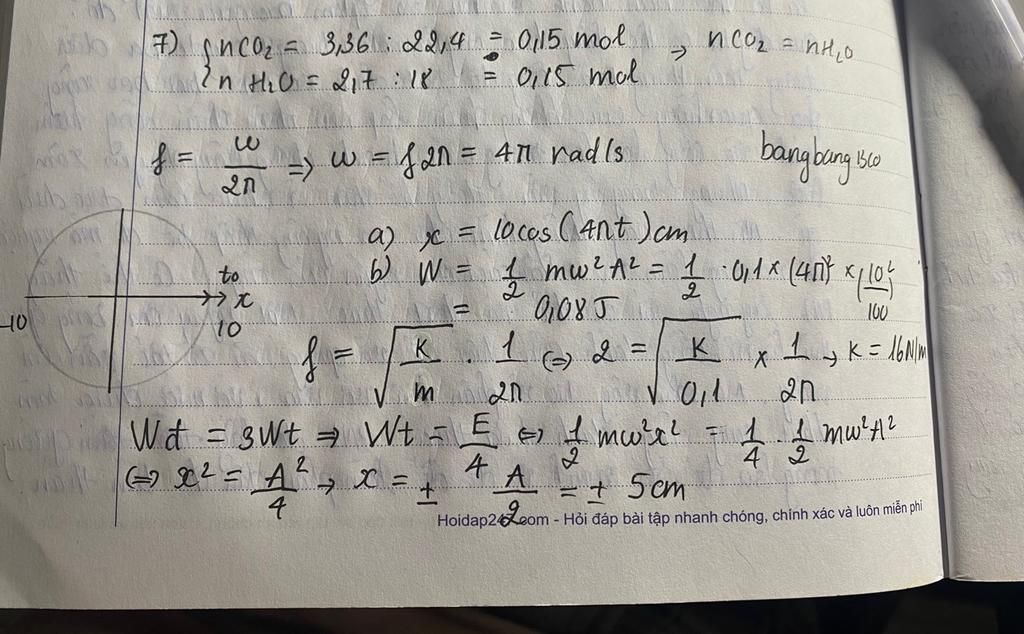 7) { nCO₂ = 3,36 : 22,4 = 0,15 mol → nCO₂ = nH₂O
nH₂O = 2,7 : 18 = 0,15 mol
f = w/2π => w = f2π = 4π rad/s bangbang1360
a) x = 10cos(4πt)cm
b) W = 1/2 mw²A² = 1/2 · 0,1 × (4π)² × (10/100)²
= 0,08J
to
x
-10
10
f = √(K/m) · 1/2π <=> 2 = √(K/0,1) × 1/2π → K = 16N/m
Wd = 3Wt => Wt = E/4 <=> 1/2 mw²x² = 1/4 · 1/2 mw²A²
<=> x² = A²/4 → x = ± A/2 = ± 5cm
Hoidap247.com - Hỏi đáp bài tập nhanh chóng, chính xác và luôn miễn phí